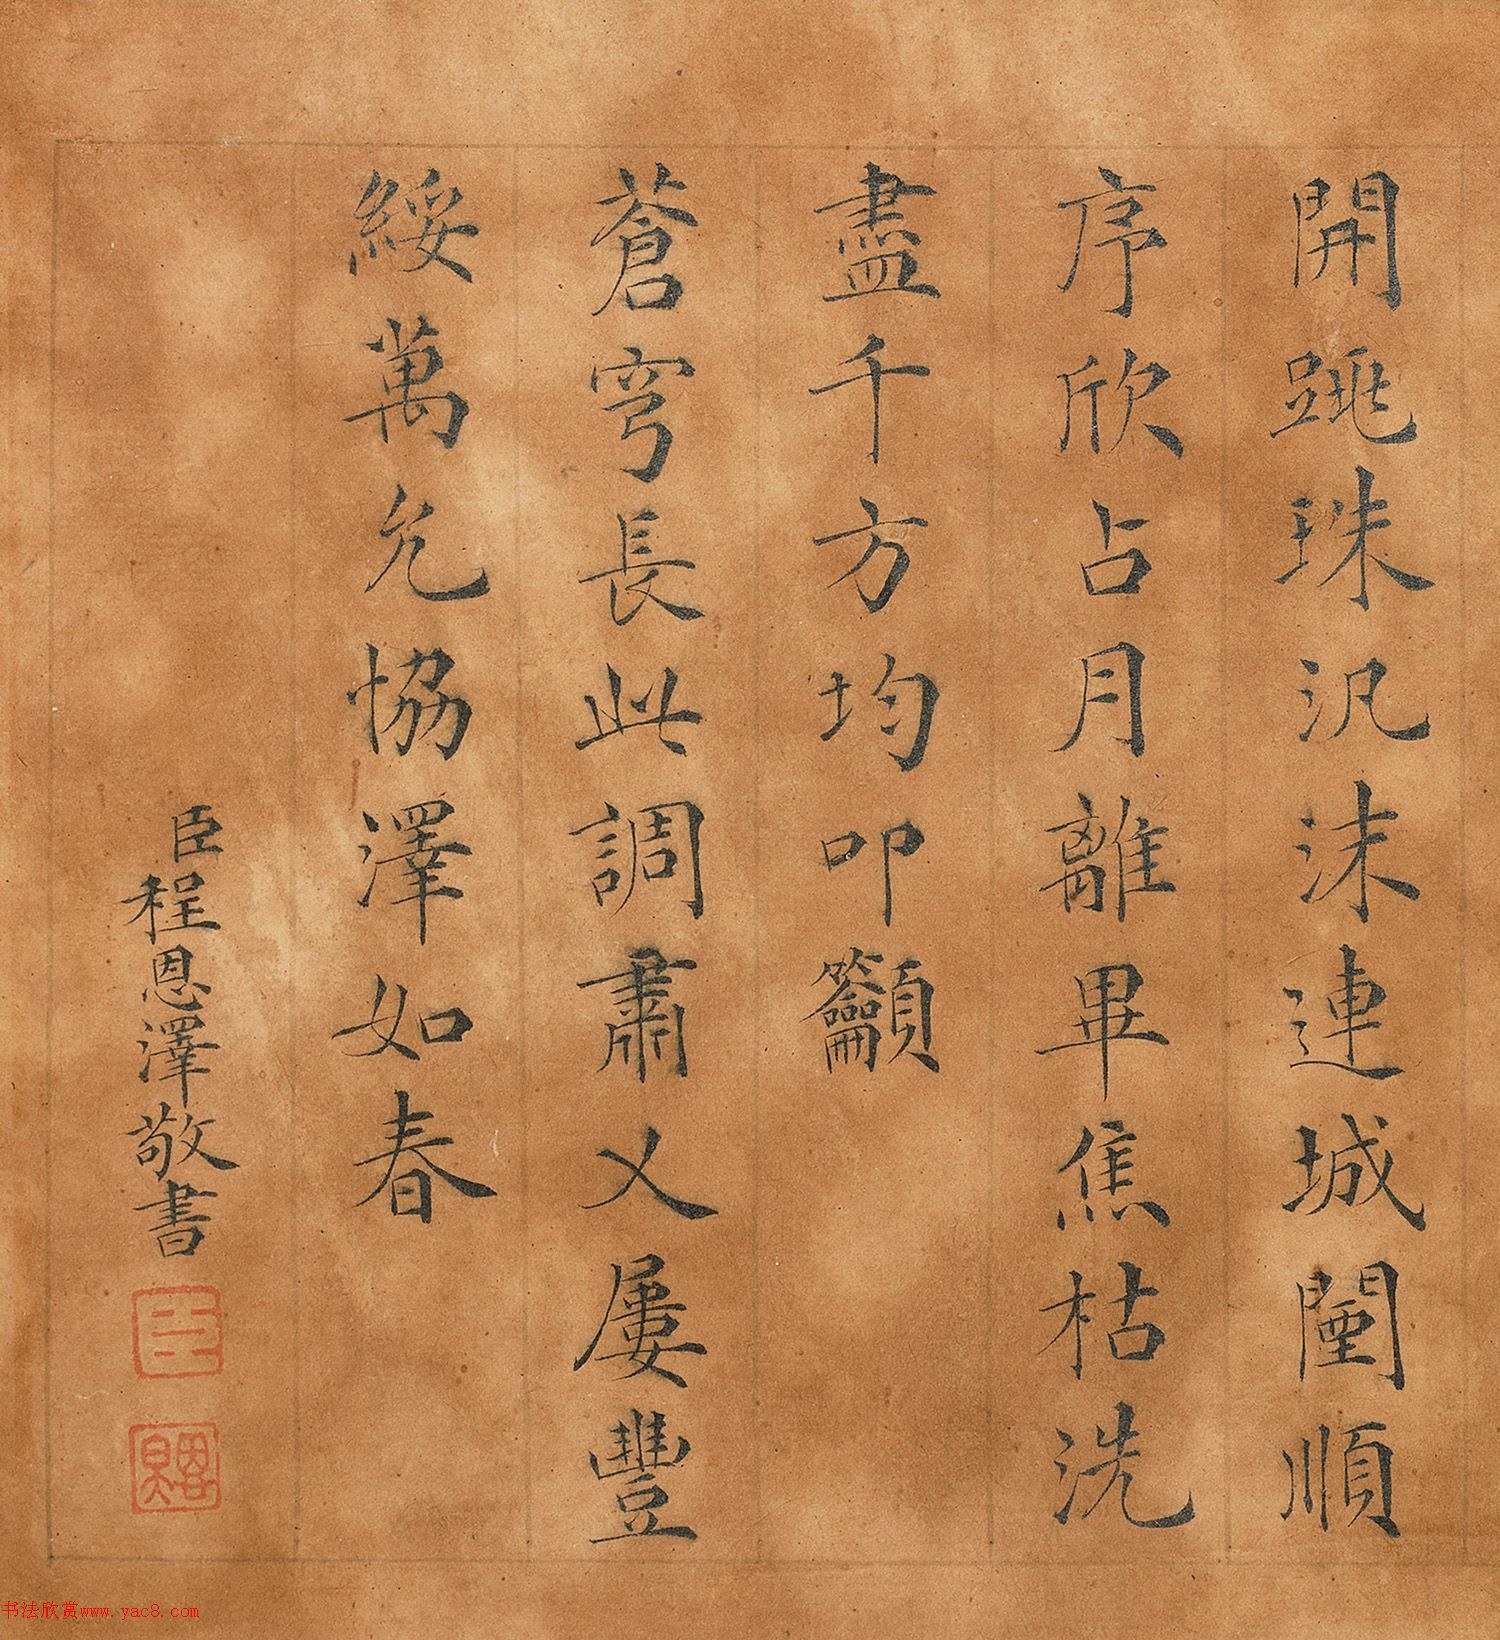 開跳珠汎沫連城闉順
序欣占月離畢焦枯洗
盡千方均叩籲
蒼穹長此調肅乂屢豐
綏萬允協澤如春
臣程恩澤敬書
臣
书法欣赏www.yac8.com